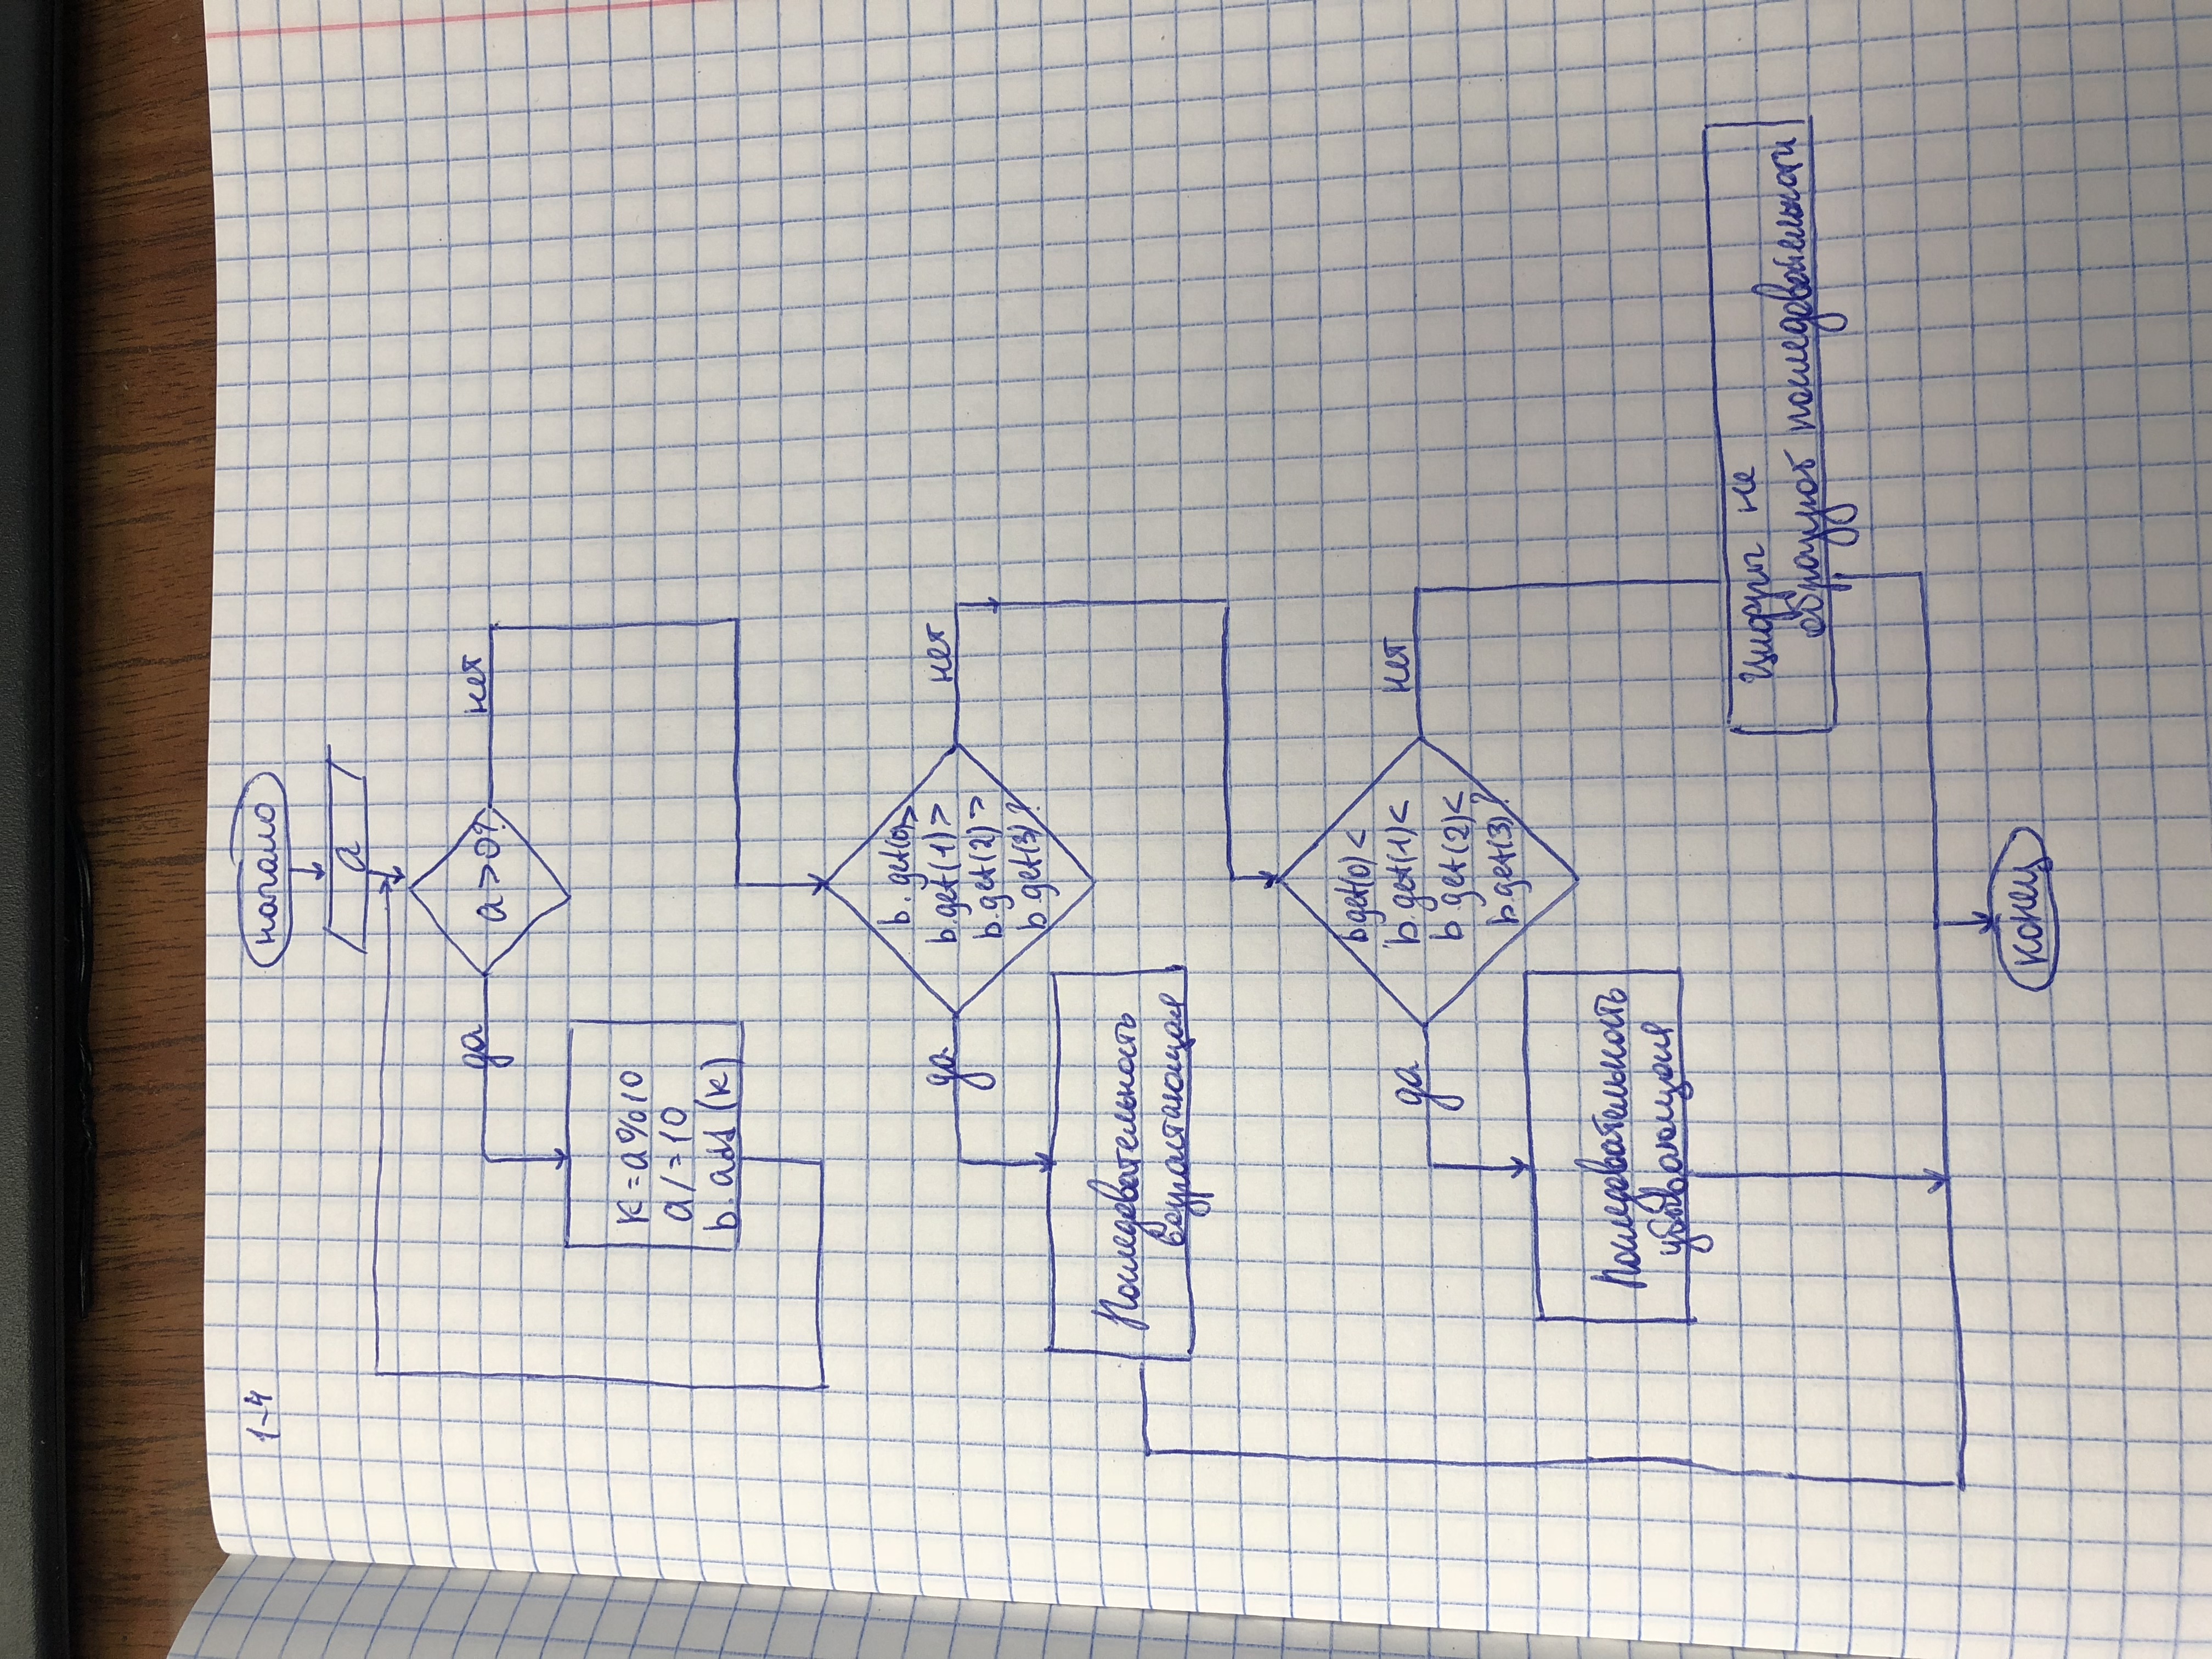 1-4
начало
a
да
a > 0?
нет
k = a % 10
a / = 10
b. add (k)
b. get(0) >
b.get(1) >
b.get(2) >
b.get(3)?
да
нет
Последовательность
возрастающая
b.get(0) <
b.get(1) <
b.get(2) <
b.get(3)?
да
нет
Последовательность
убывающая
Цифры не
образуют последовательности
конец